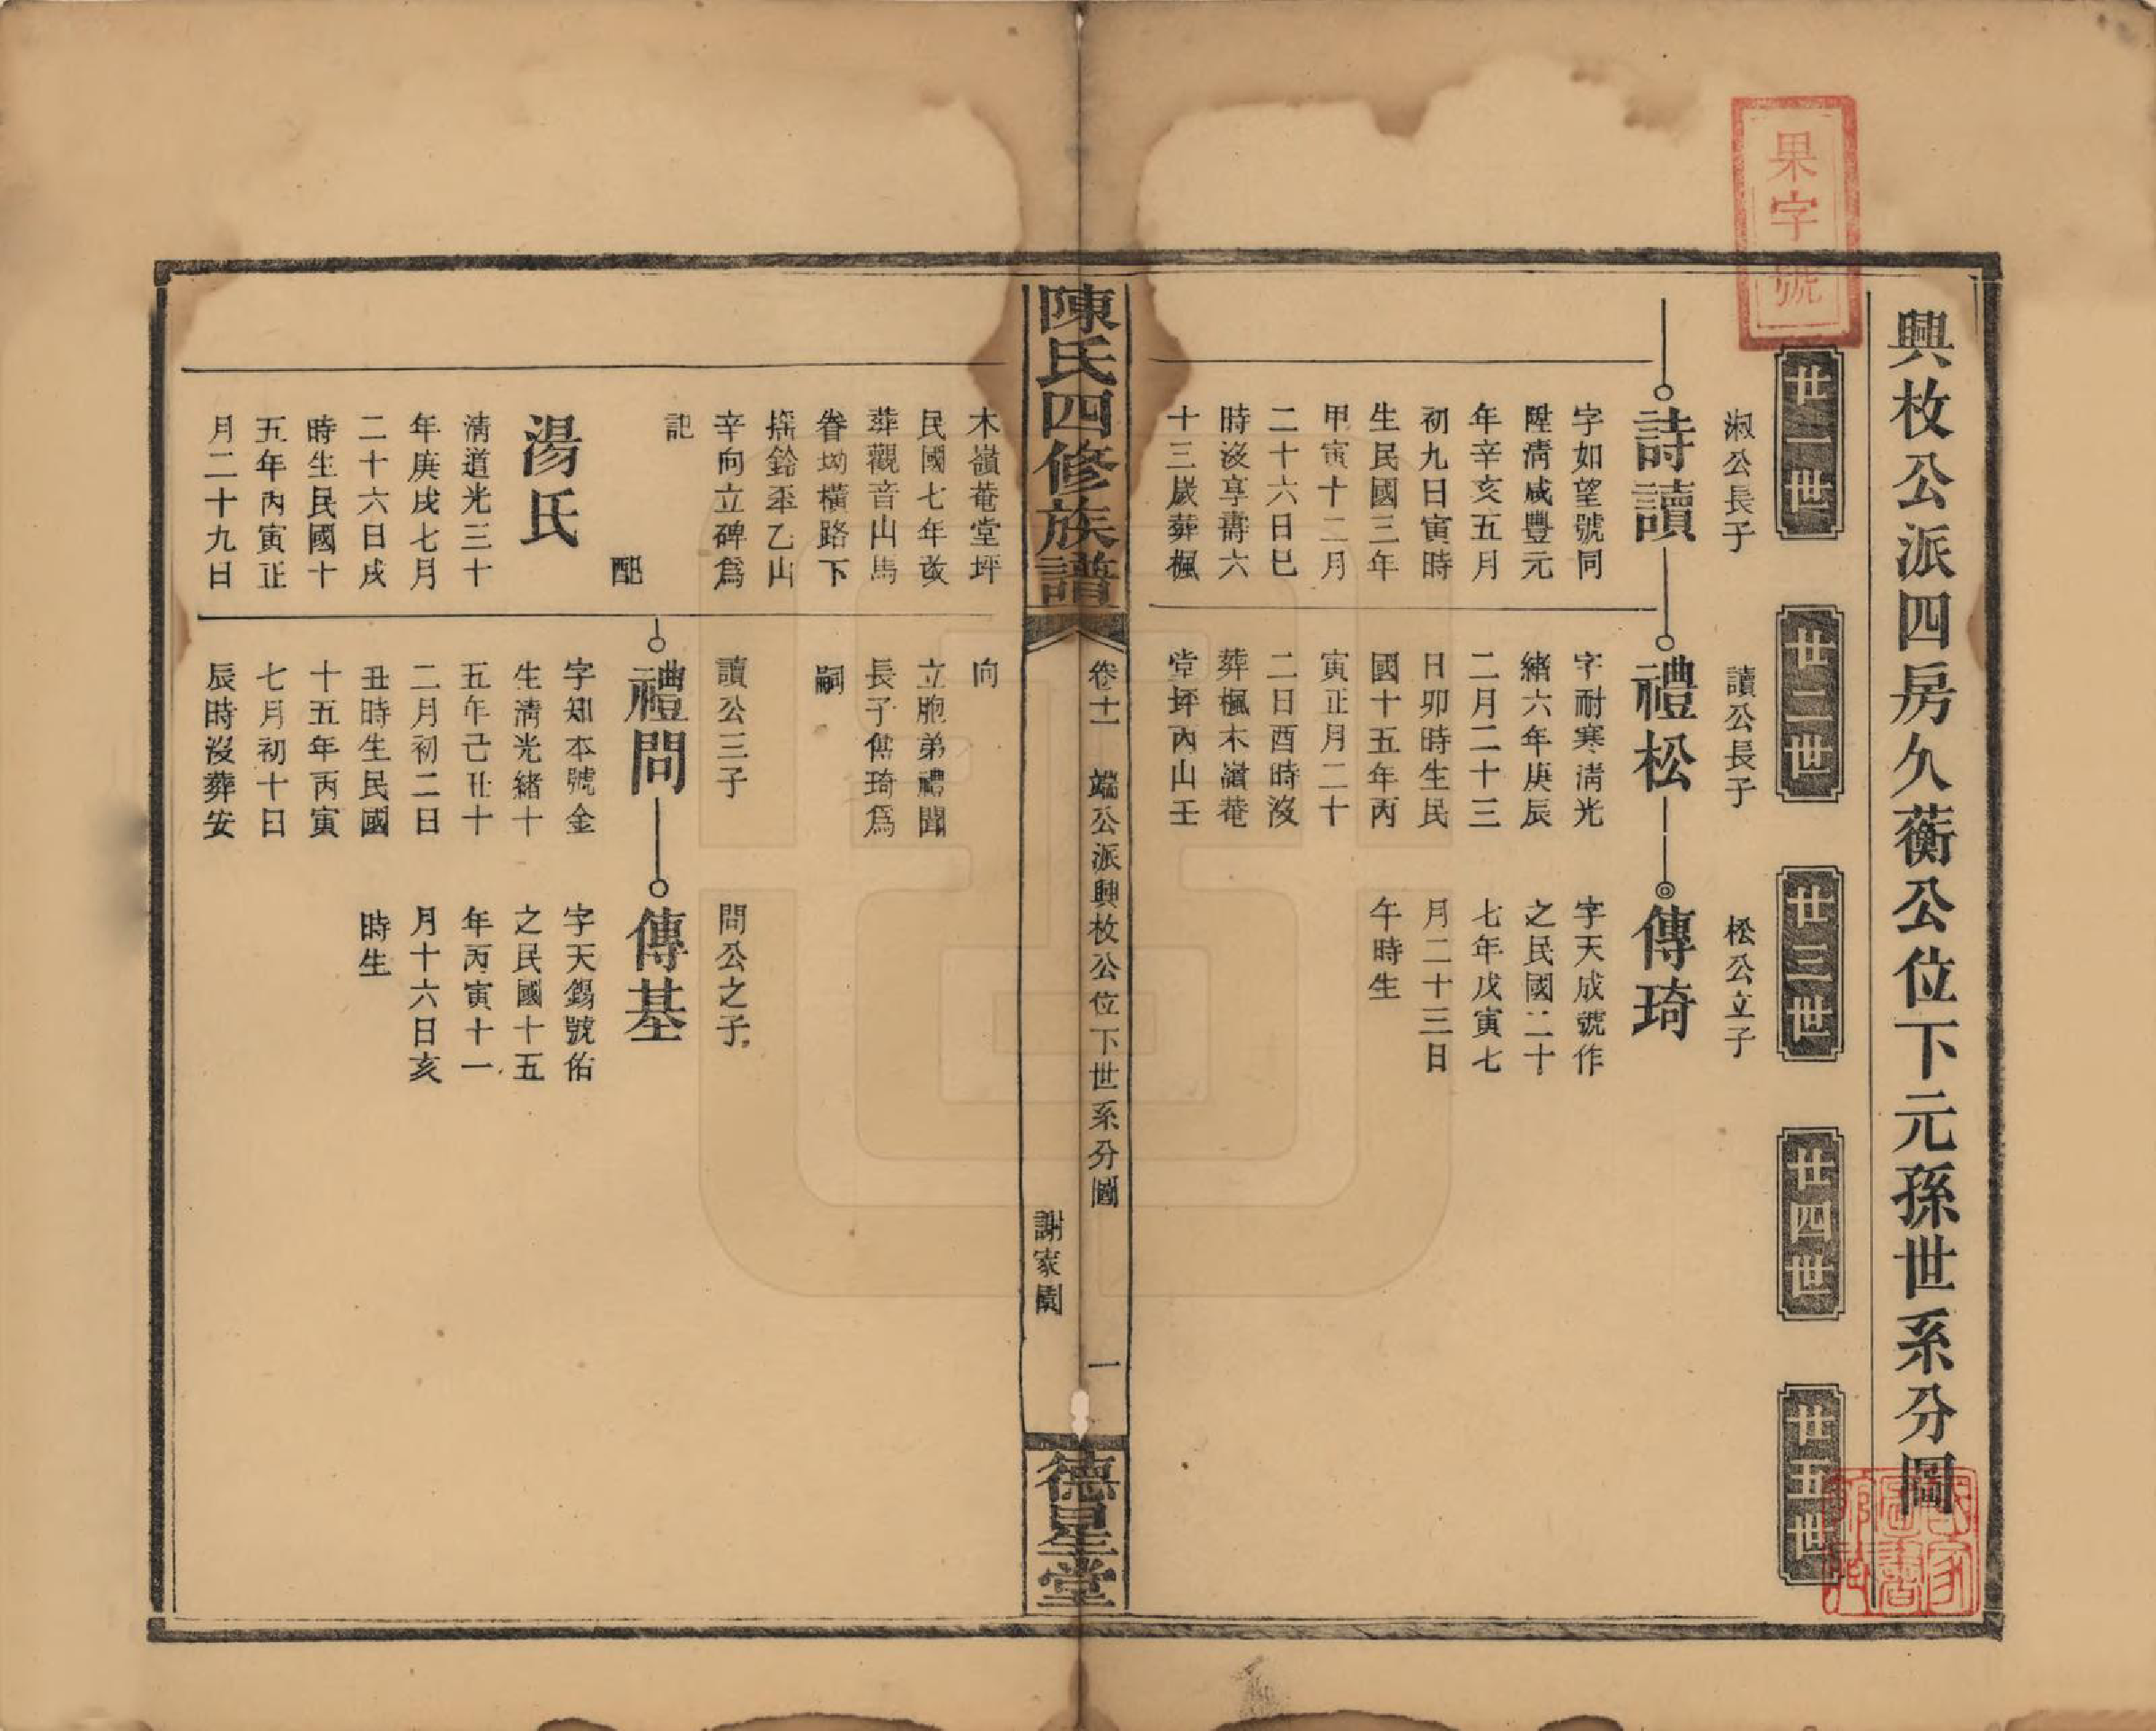 果字號
興枚公派四房久蘅公位下元孫世系分圖
廿一世
廿二世
廿三世
廿四世
廿五世
淑公長子
詩讀
字如望號同
陞清咸豐元
年辛亥五月
初九日寅時
生民國三年
甲寅十二月
二十六日巳
時沒享壽六
十三歲葬楓
讀公長子
禮松
字耐寒清光
緒六年庚辰
二月二十三
日卯時生民
國十五年丙
寅正月二十
二日酉時沒
葬楓木嶺菴
堂坪丙山壬
松公立子
傳琦
字天成號作
之民國二十
七年戊寅七
月二十三日
午時生
陳氏四修族譜
卷十一
端公派興枚公位下世系分圖
一
謝家園
德星堂
木嶺菴堂坪
民國七年改
葬觀音山馬
眷坳橫路下
搖鈴丕乙山
辛向立碑為
記
配
湯氏
清道光三十
年庚戌七月
二十六日戌
時生民國十
五年丙寅正
月二十九日
向
立胞弟禮聞
長子傳琦為
嗣
讀公三子
禮問
字知本號金
生清光緒十
五年己丑十
二月初二日
丑時生民國
十五年丙寅
七月初十日
辰時沒葬安
問公之子
傳基
字天錫號佑
之民國十五
年丙寅十一
月十六日亥
時生